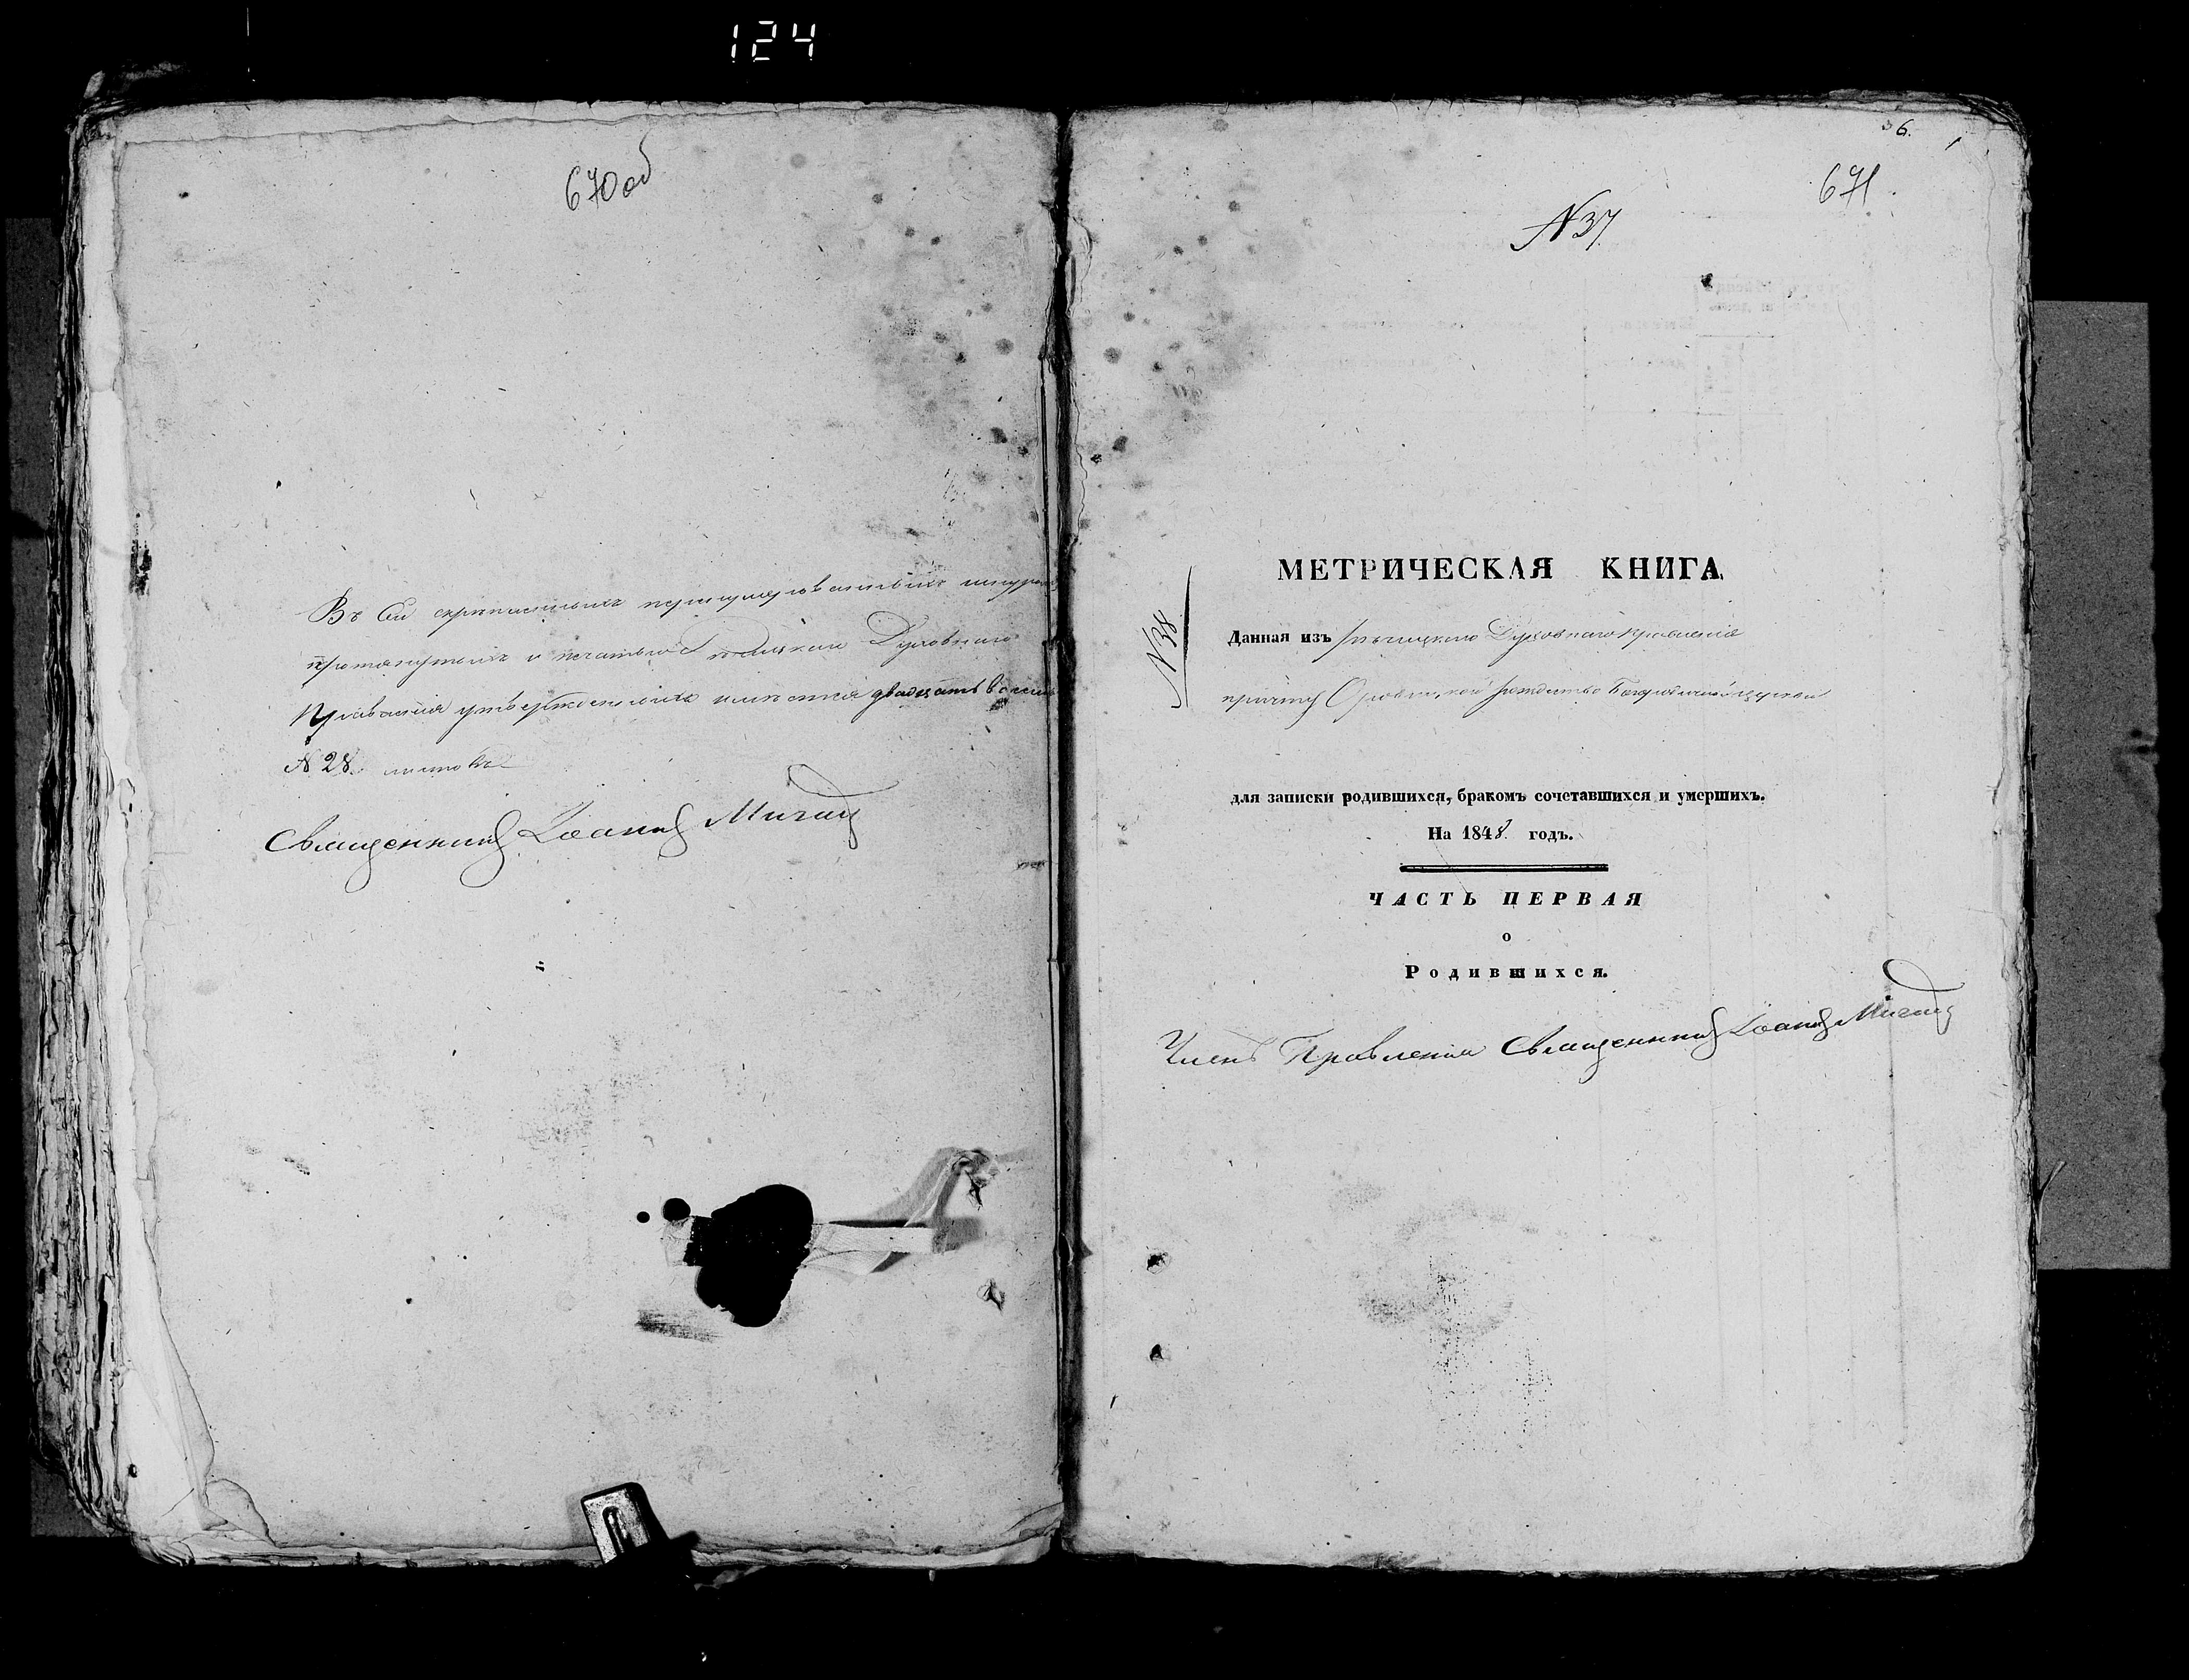 124
670об
Въ сей скрепленныхъ пронумерованныхъ шнуромъ
протянутыхъ и печатью Духовнаго
Правленія утвержденныхъ имеется двадцать восемь
№ 28. листовъ
Священникъ Іоаннъ
6.
671
№37
МЕТРИЧЕСКАЯ КНИГА,
№38
Данная изъ Духовнаго Правленія
причту Рождество Богородичной церкви
для записки родившихся, бракомъ сочетавшихся и умершихъ.
На 1848 годъ.
ЧАСТЬ ПЕРВАЯ
о
Родившихся.
Членъ Правленія Священникъ Іоаннъ